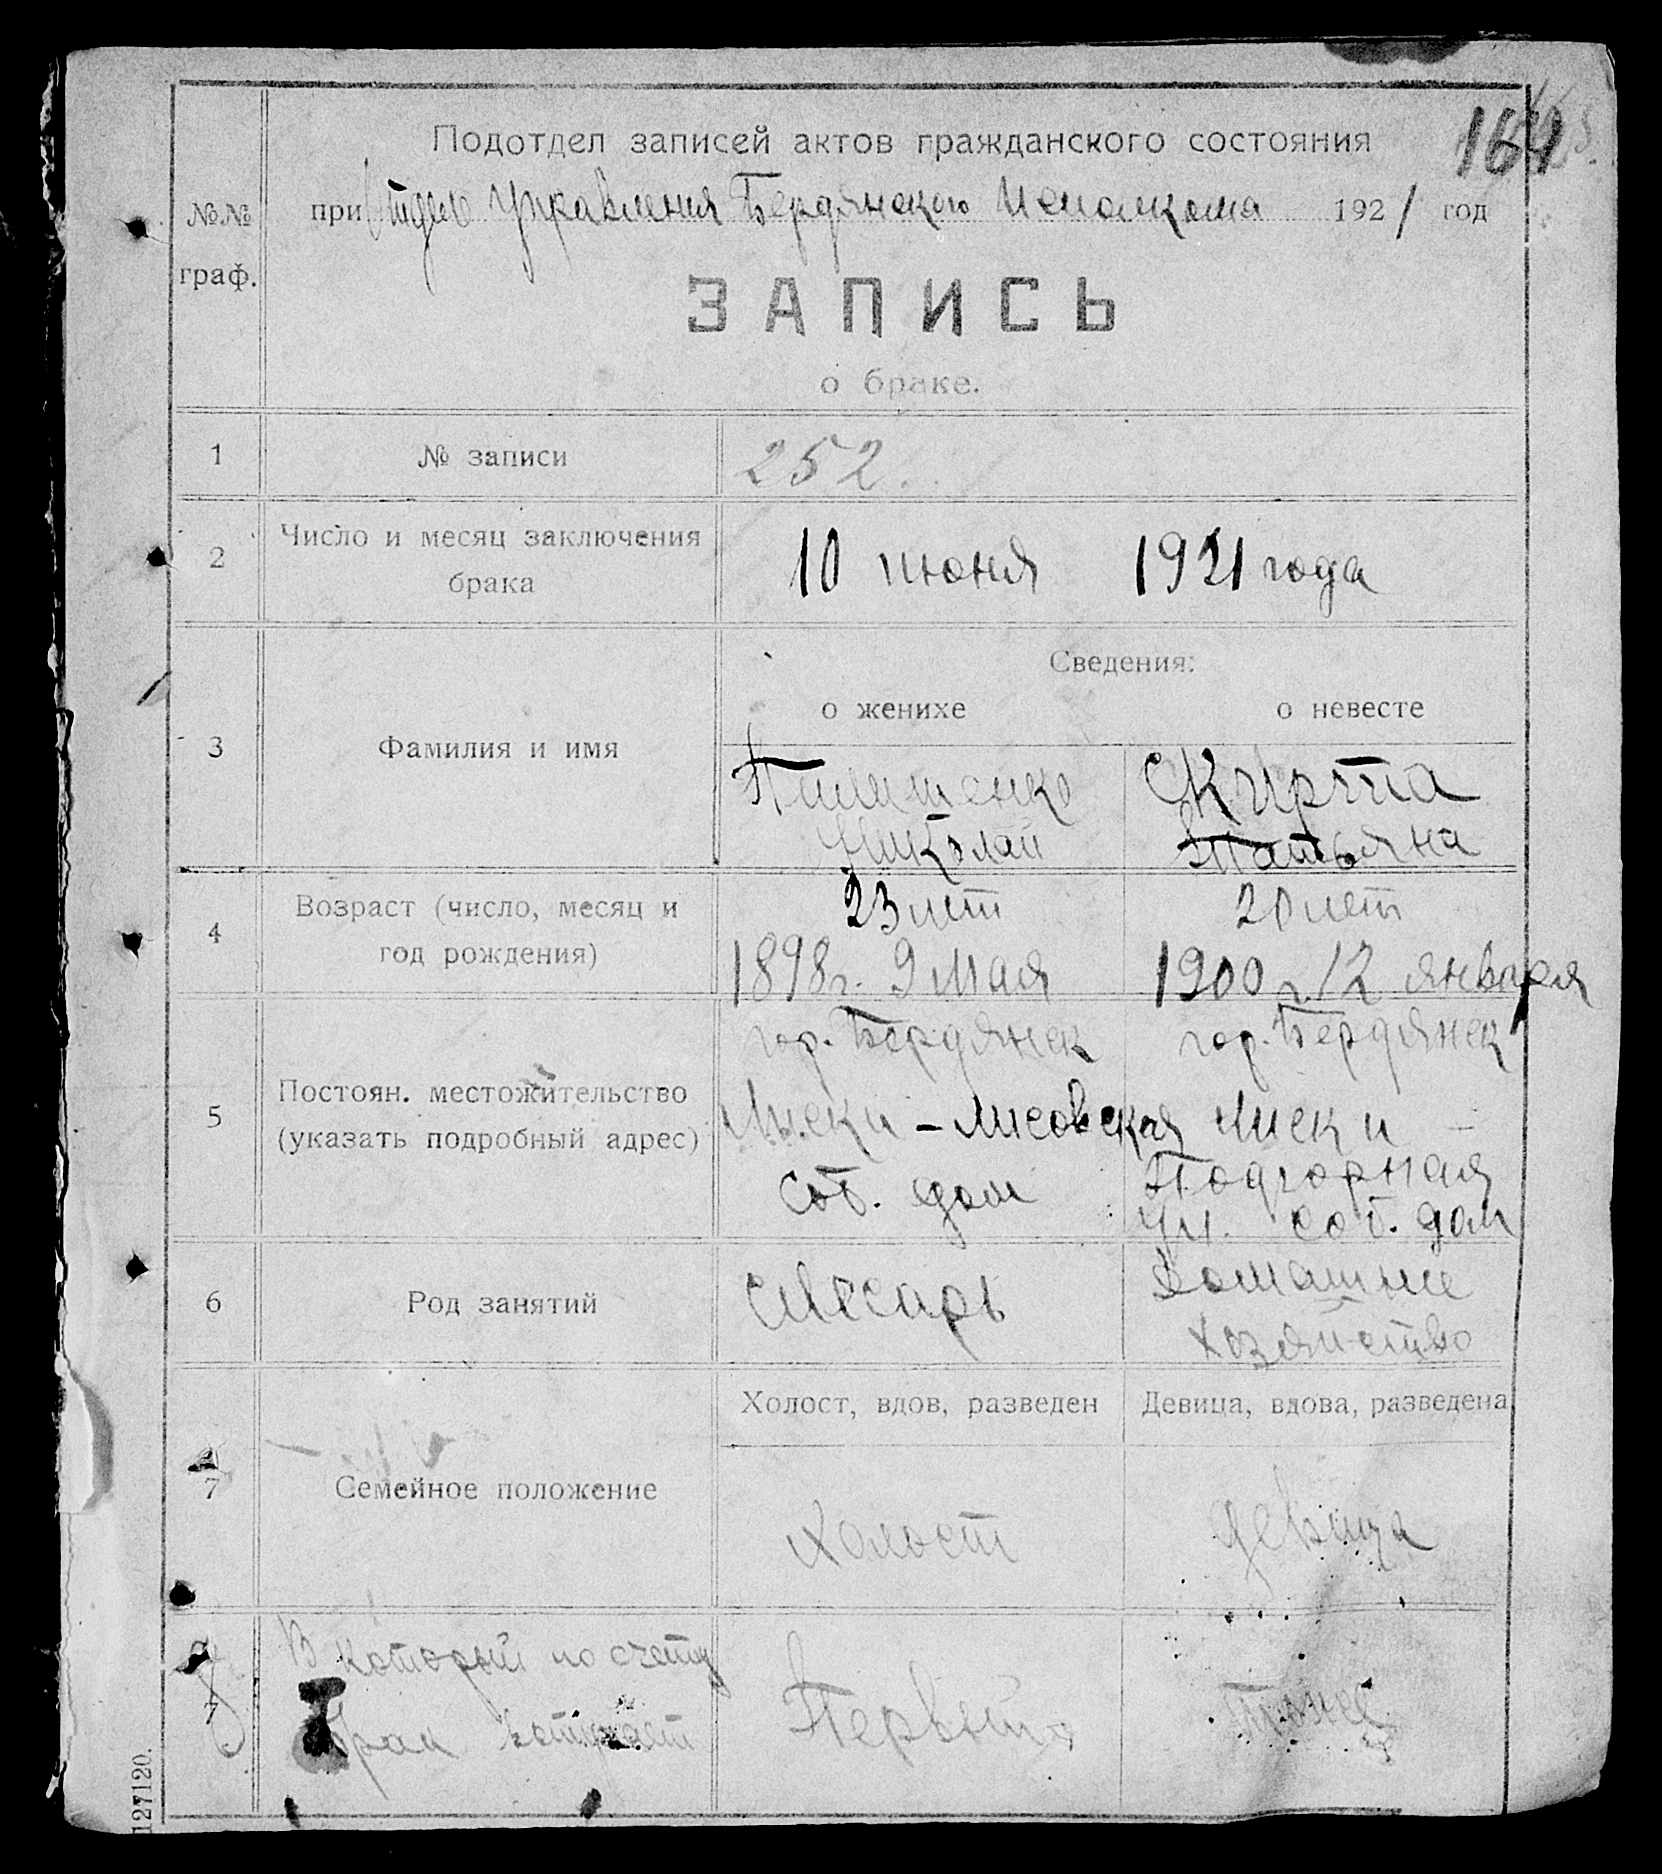 164
Подотдел записей актов гражданского состояния
при Отделе Управления Бердянского Исполкома 1921 год
№№
граф.
ЗАПИСЬ
о браке.
1 № записи 252.
2 Число и месяц заключения
брака
10 июня 1921 года
Сведения:
о женихе о невесте
3 Фамилия и имя
Пилипенко Скирта
Николай Татьяна
4 Возраст (число, месяц и
год рождения)
23 лет 20 лет
1898 г. 9 мая 1900 г. 12 января
5 Постоян. местожительство
(указать подробный адрес)
гор. Бердянск гор. Бердянск
Лиски - Лисовская Лиски -
соб. дом Подгорная
ул. соб. дом
6 Род занятий
слесарь Домашнее
хозяйство
Холост, вдов, разведен Девица, вдова, разведена
7 Семейное положение
холост девица
7 В который по счету
брак вступает
Первый тоже
127120.